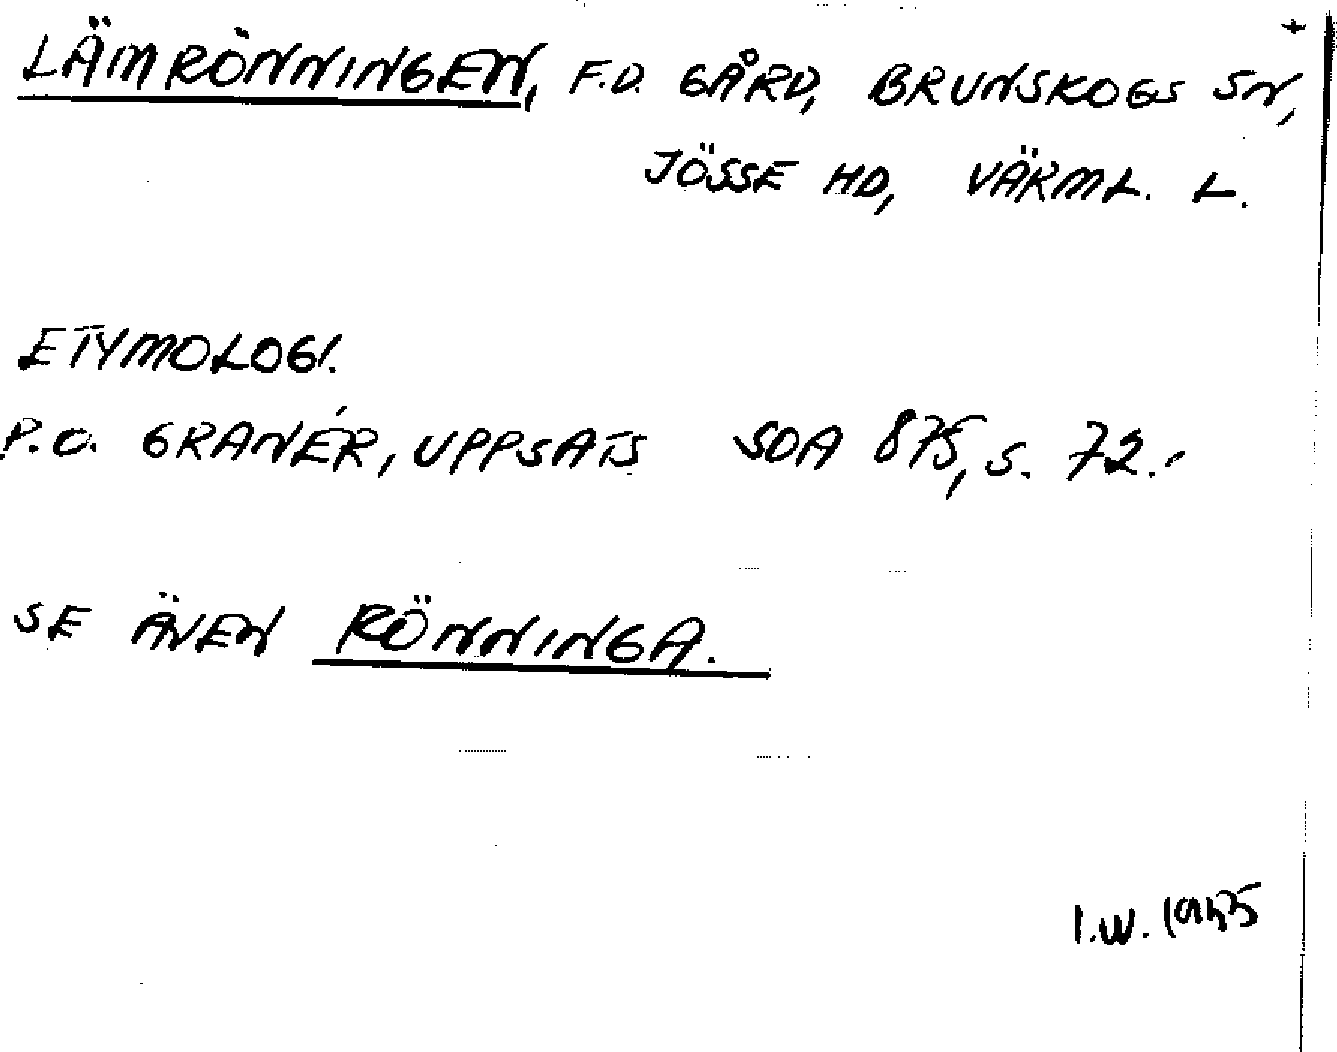 +
LÄMRÖNNINGEN, F.D. GÅRD, BRUNSKOGS SN,
JÖSSE HD, VÄRML. L.
ETYMOLOGI.
P.O. GRANÉR, UPPSATS SOA 875, S. 72.-
SE ÄVEN RÖNNINGA.
I.W.